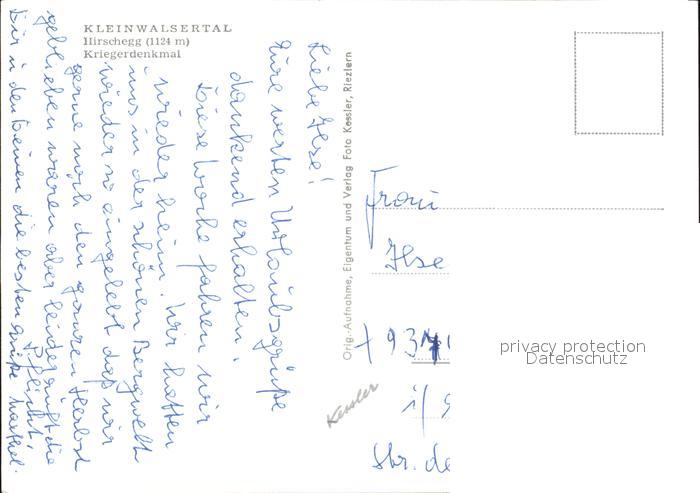 KLEINWALSERTAL
Hirschegg (1124 m)
Kriegerdenkmal
Liebe Ilse!
Eure werten Urlaubsgrüße
dankend erhalten.
Diese Woche fahren wir
wieder heim. Wir hatten
uns in der schönen Bergwelt
wieder so eingelebt daß wir
gerne noch den ganzen Herbst
geblieben wären aber leider ruft die
Pflicht.
Dir u. den Deinen die besten Grüße
Orig.-Aufnahme, Eigentum und Verlag Foto Kessler, Riezlern
Kessler
Frau
Ilse
93
Str. de
privacy protection
Datenschutz